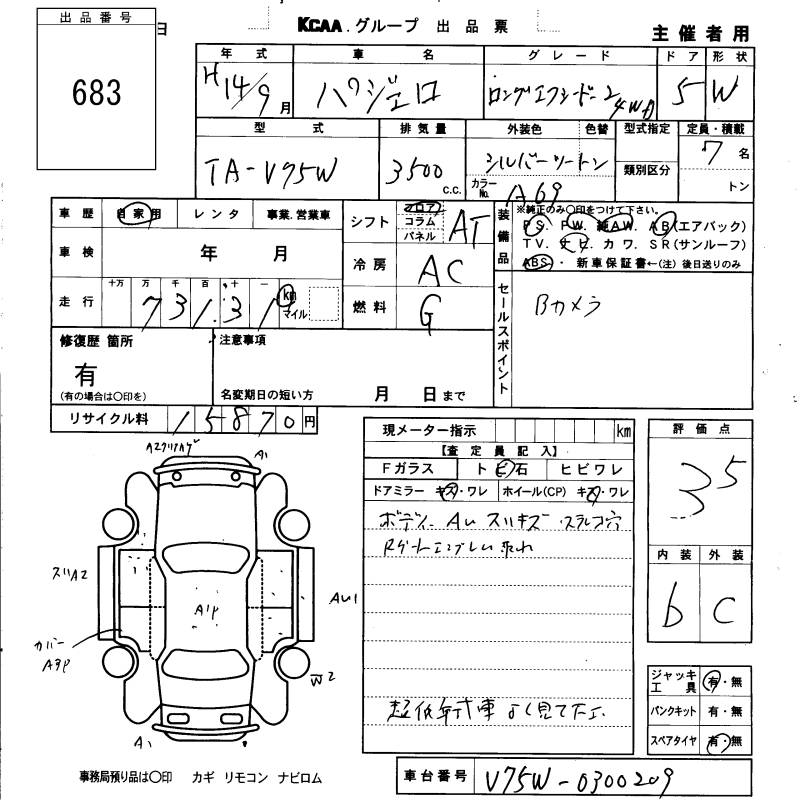 出品番号
683
日
KCAA.グループ 出品票
主催者用
年式 車名 グレード ドア 形状
H14/9月 パジェロ ロングエクシード-2 4WD 5 W
型式 排気量 外装色 色替 型式指定 定員・積載
TA-V75W 3500 c.c. シルバーツートン 7名
類別区分
カラーNo. A69 トン
車歴 自家用 レンタ 事業.営業車
シフト フロア コラム パネル AT
装備品 ※純正のみ〇印をつけて下さい。
PS. PW. 純AW. AB(エアバック)
TV. ナビ. カワ. SR(サンルーフ)
ABS・ 新車保証書←(注) 後日送りのみ
車検 年 月
冷房 AC
走行 十万 万 千 百 十 一
73131 km マイル
燃料 G
セールスポイント
Bカメラ
修復歴 箇所
有
(有の場合は〇印を)
注意事項
名変期日の短い方 月 日まで
リサイクル料 15870円
現メーター指示 km
【査定員記入】
Fガラス ト ビ石 ヒビワレ
ドアミラー キズ・ワレ ホイール(CP) キズ・ワレ
ボディー AU スリキズ
Rゲートエンブレム 取れ
超低年式車 よく見て下さい
評価点
3.5
内装 外装
b C
A1
スリA2
A1P
AU1
カバー
W2
A1
ジャッキ工具 有・無
パンクキット 有・無
スペアタイヤ 有・無
事務局預り品は〇印 カギ リモコン ナビロム
車台番号 V75W-0300209